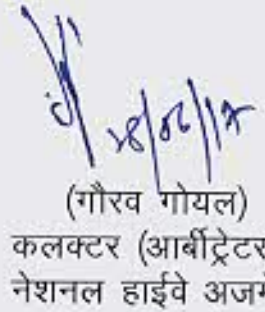 28/06/17
(गौरव गोयल)
कलक्टर (आर्बीट्रेटर
नेशनल हाईवे अजमे